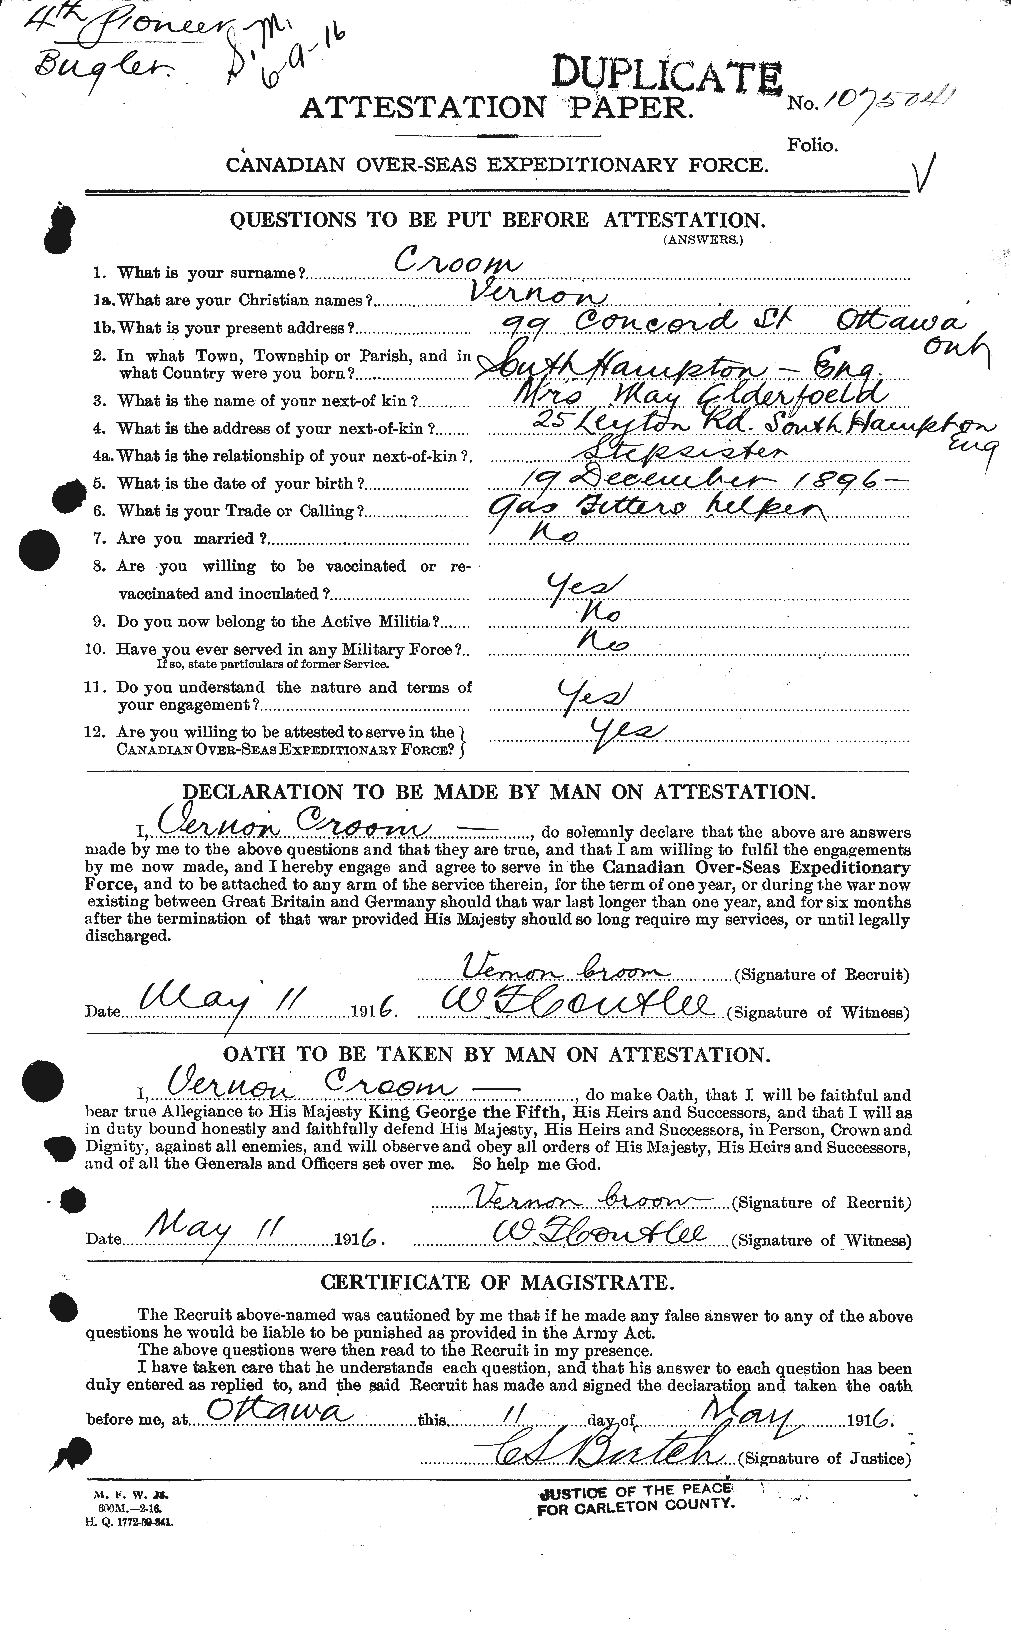 4th Pioneer S. M.
Bugler. 6-9-16
DUPLICATE
ATTESTATION PAPER.
No. 1075041
Folio.
CANADIAN OVER-SEAS EXPEDITIONARY FORCE.
V
QUESTIONS TO BE PUT BEFORE ATTESTATION.
(ANSWERS.)
1. What is your surname? Croom
1a. What are your Christian names? Vernon
1b. What is your present address? 99 Concord St Ottawa Ont
2. In what Town, Township or Parish, and in
what Country were you born? South Hampton - Eng.
3. What is the name of your next-of kin? Mrs May Elderfoeld
4. What is the address of your next-of-kin? 25 Leyton Rd. South Hampton Eng
4a. What is the relationship of your next-of-kin? Stepsister
5. What is the date of your birth? 19 December 1896 -
6. What is your Trade or Calling? Gas Fitters helper
7. Are you married? No
8. Are you willing to be vaccinated or re-
vaccinated and inoculated? Yes
9. Do you now belong to the Active Militia? No
10. Have you ever served in any Military Force? No
If so, state particulars of former Service.
11. Do you understand the nature and terms of
your engagement? Yes
12. Are you willing to be attested to serve in the
CANADIAN OVER-SEAS EXPEDITIONARY FORCE? Yes
DECLARATION TO BE MADE BY MAN ON ATTESTATION.
I, Vernon Croom —, do solemnly declare that the above are answers
made by me to the above questions and that they are true, and that I am willing to fulfil the engagements
by me now made, and I hereby engage and agree to serve in the Canadian Over-Seas Expeditionary
Force, and to be attached to any arm of the service therein, for the term of one year, or during the war now
existing between Great Britain and Germany should that war last longer than one year, and for six months
after the termination of that war provided His Majesty should so long require my services, or until legally
discharged.
Vernon Croom (Signature of Recruit)
Date May 11 1916. (Signature of Witness)
OATH TO BE TAKEN BY MAN ON ATTESTATION.
I, Vernon Croom —, do make Oath, that I will be faithful and
bear true Allegiance to His Majesty King George the Fifth, His Heirs and Successors, and that I will as
in duty bound honestly and faithfully defend His Majesty, His Heirs and Successors, in Person, Crown and
Dignity, against all enemies, and will observe and obey all orders of His Majesty, His Heirs and Successors,
and of all the Generals and Officers set over me. So help me God.
Vernon Croom (Signature of Recruit)
Date May 11 1916. (Signature of Witness)
CERTIFICATE OF MAGISTRATE.
The Recruit above-named was cautioned by me that if he made any false answer to any of the above
questions he would be liable to be punished as provided in the Army Act.
The above questions were then read to the Recruit in my presence.
I have taken care that he understands each question, and that his answer to each question has been
duly entered as replied to, and the said Recruit has made and signed the declaration and taken the oath
before me, at Ottawa this 11 day of May 1916.
(Signature of Justice)
M. F. W. 23.
600M.—2-16.
H. Q. 1772-39-841.
JUSTICE OF THE PEACE
FOR CARLETON COUNTY.